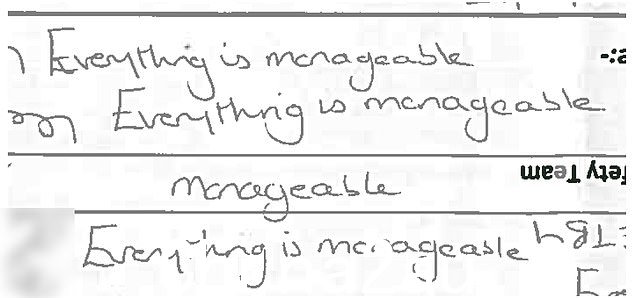 Everything is manageable
Everything is manageable
fety Team
manageable
Everything is manageable